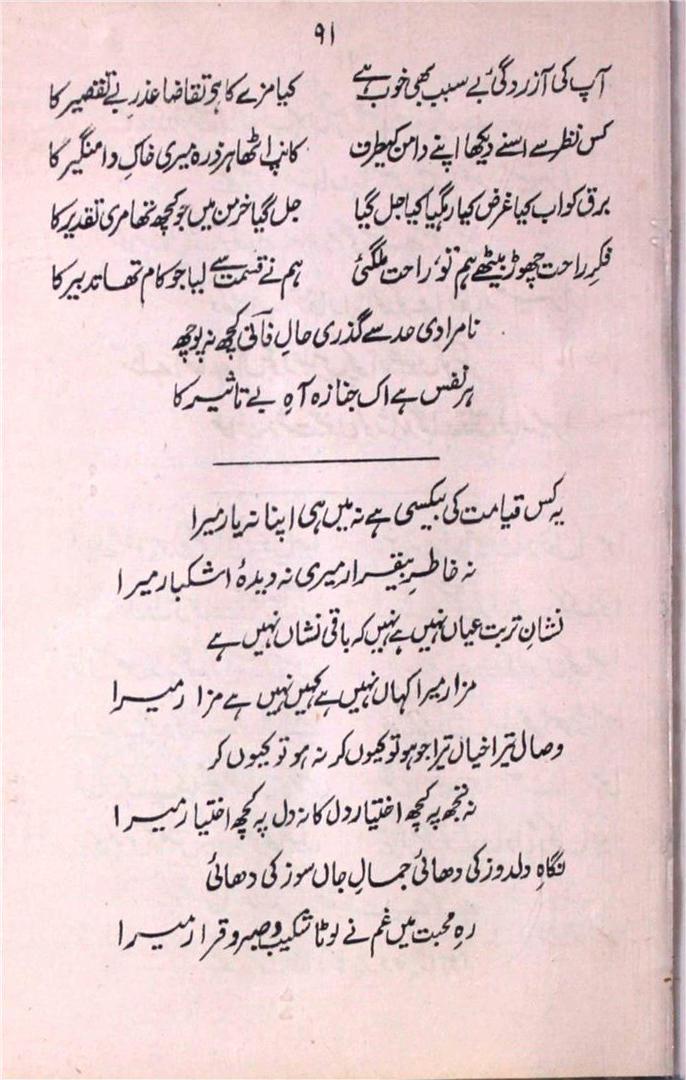 ۹۱
آپ کی آزردگیٔ بے سبب بھی خوب ہے کیا مزے کا ہو تقاضا عذرِ بے تقصیر کا
کس نظر سے اسنے دیکھا اپنے دامن کیطرف کانپ اٹھا ہر ذرہ میری خاکِ دامنگیر کا
برق کو اب کیا غرض کیا رہگیا کیا جل گیا جل گیا خرمن میں جو کچھ تھا مری تقدیر کا
فکرِ راحت چھوڑ بیٹھے ہم تو، راحت ملگئی ہم نے قسمت سے لیا جو کام تھا تدبیر کا
نامرادی حد سے گذری حالِ فانیؔ کچھ نہ پوچھ
ہر نفس ہے اک جنازہ آہِ بے تاثیر کا
یہ کس قیامت کی بیکسی ہے نہ میں ہی اپنا نہ یار میرا
نہ خاطرِ بیقرار میری نہ دیدۂ اشکبار میرا
نشانِ تربت عیاں نہیں ہے نہیں کہ باقی نشاں نہیں ہے
مزار میرا کہاں نہیں ہے کہیں نہیں ہے مزار میرا
وصال تیرا خیال تیرا جو ہو تو کیوں کر نہ ہو تو کیوں کر
نہ تجھ پہ کچھ اختیار دل کا نہ دل پہ کچھ اختیار میرا
نگاہِ دلدوز کی دھائی جمالِ جاں سوز کی دھائی
رہِ محبت میں غم نے لوٹا شکیب و صبر و قرار میرا